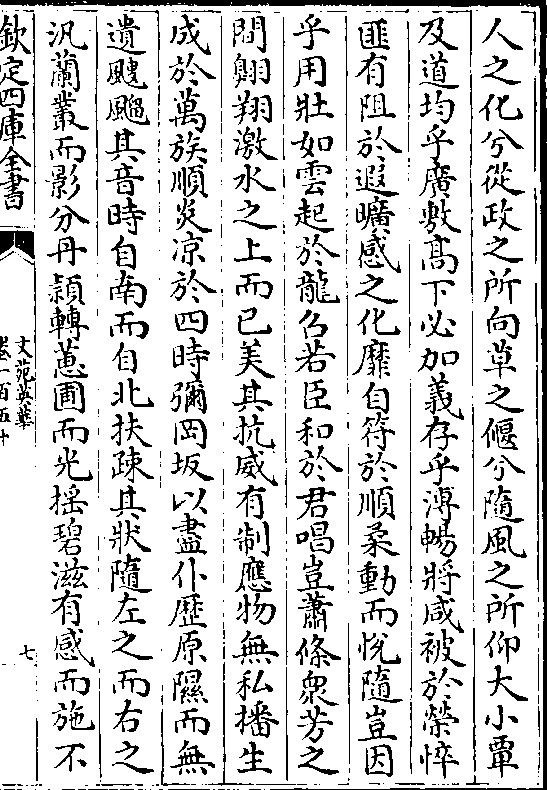 人之化兮從政之所向草之偃兮隨風之所仰大小覃
及道均乎廣敷髙下必加義存乎溥暢將咸被於榮悴
匪有阻於遐曠感之化靡自符於順柔動而恱隨豈因
乎用壯如雲起於龍召若臣和於君唱豈蕭條衆芳之
間翺翔激水之上而已美其抗威有制應物無私播生
成於萬族順炎凉於四時彌岡坂以盡仆歴原隰而無
遺颼飀其音時自南而自北扶疎其狀隨左之而右之
汎蘭叢而影分丹穎轉蕙圃而光揺碧滋有感而施不
欽定四庫全書
文苑英華
卷一百五十
七